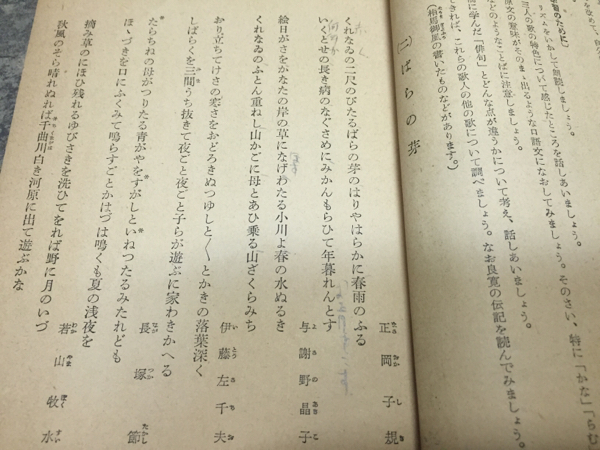 習のために
リズムをいかして朗読しましょう。
三人の歌の特色について感じたところを話しあいましょう。
原文の意味がそのまゝ出るような口語文になおしてみましょう。そのさい、特に「かな」「らむ」
などのようなことばに注意しましょう。
に学んだ「俳句」とどんな点が違うかについて考え、話しあいましょう。
できれば、これらの歌人の他の歌について調べましょう。なお良寛の伝記を読んでみましょう。
(相馬御風の書いたものなどがあります。)
(二) ばらの芽
正岡子規
くれなゐの二尺のびたるばらの芽のはりやはらかに春雨のふる
いくとせの長き病のなぐさめにみかんもらひて年暮れんとす
与謝野晶子
絵日がさをかなたの岸の草になげわたる小川よ春の水ぬるき
くれなゐのふとん重ねし山かごに母とあひ乗る山ざくらみち
伊藤左千夫
おり立ちてけさの寒さをおどろきぬつゆしと〳〵とかきの落葉深く
しばらくを三間うち抜きて夜ごと夜ごと子らが遊ぶに家わきかへる
長塚節
たらちねの母がつりたる青がやをすがしといねつたるみたれども
ほゝづきを口にふくみて鳴らすごとかはづは鳴くも夏の浅夜を
若山牧水
摘み草のにほひ残れるゆびさきを洗ひてをれば野に月のいづ
秋風のそら晴れぬれば千曲川白き河原に出て遊ぶかな